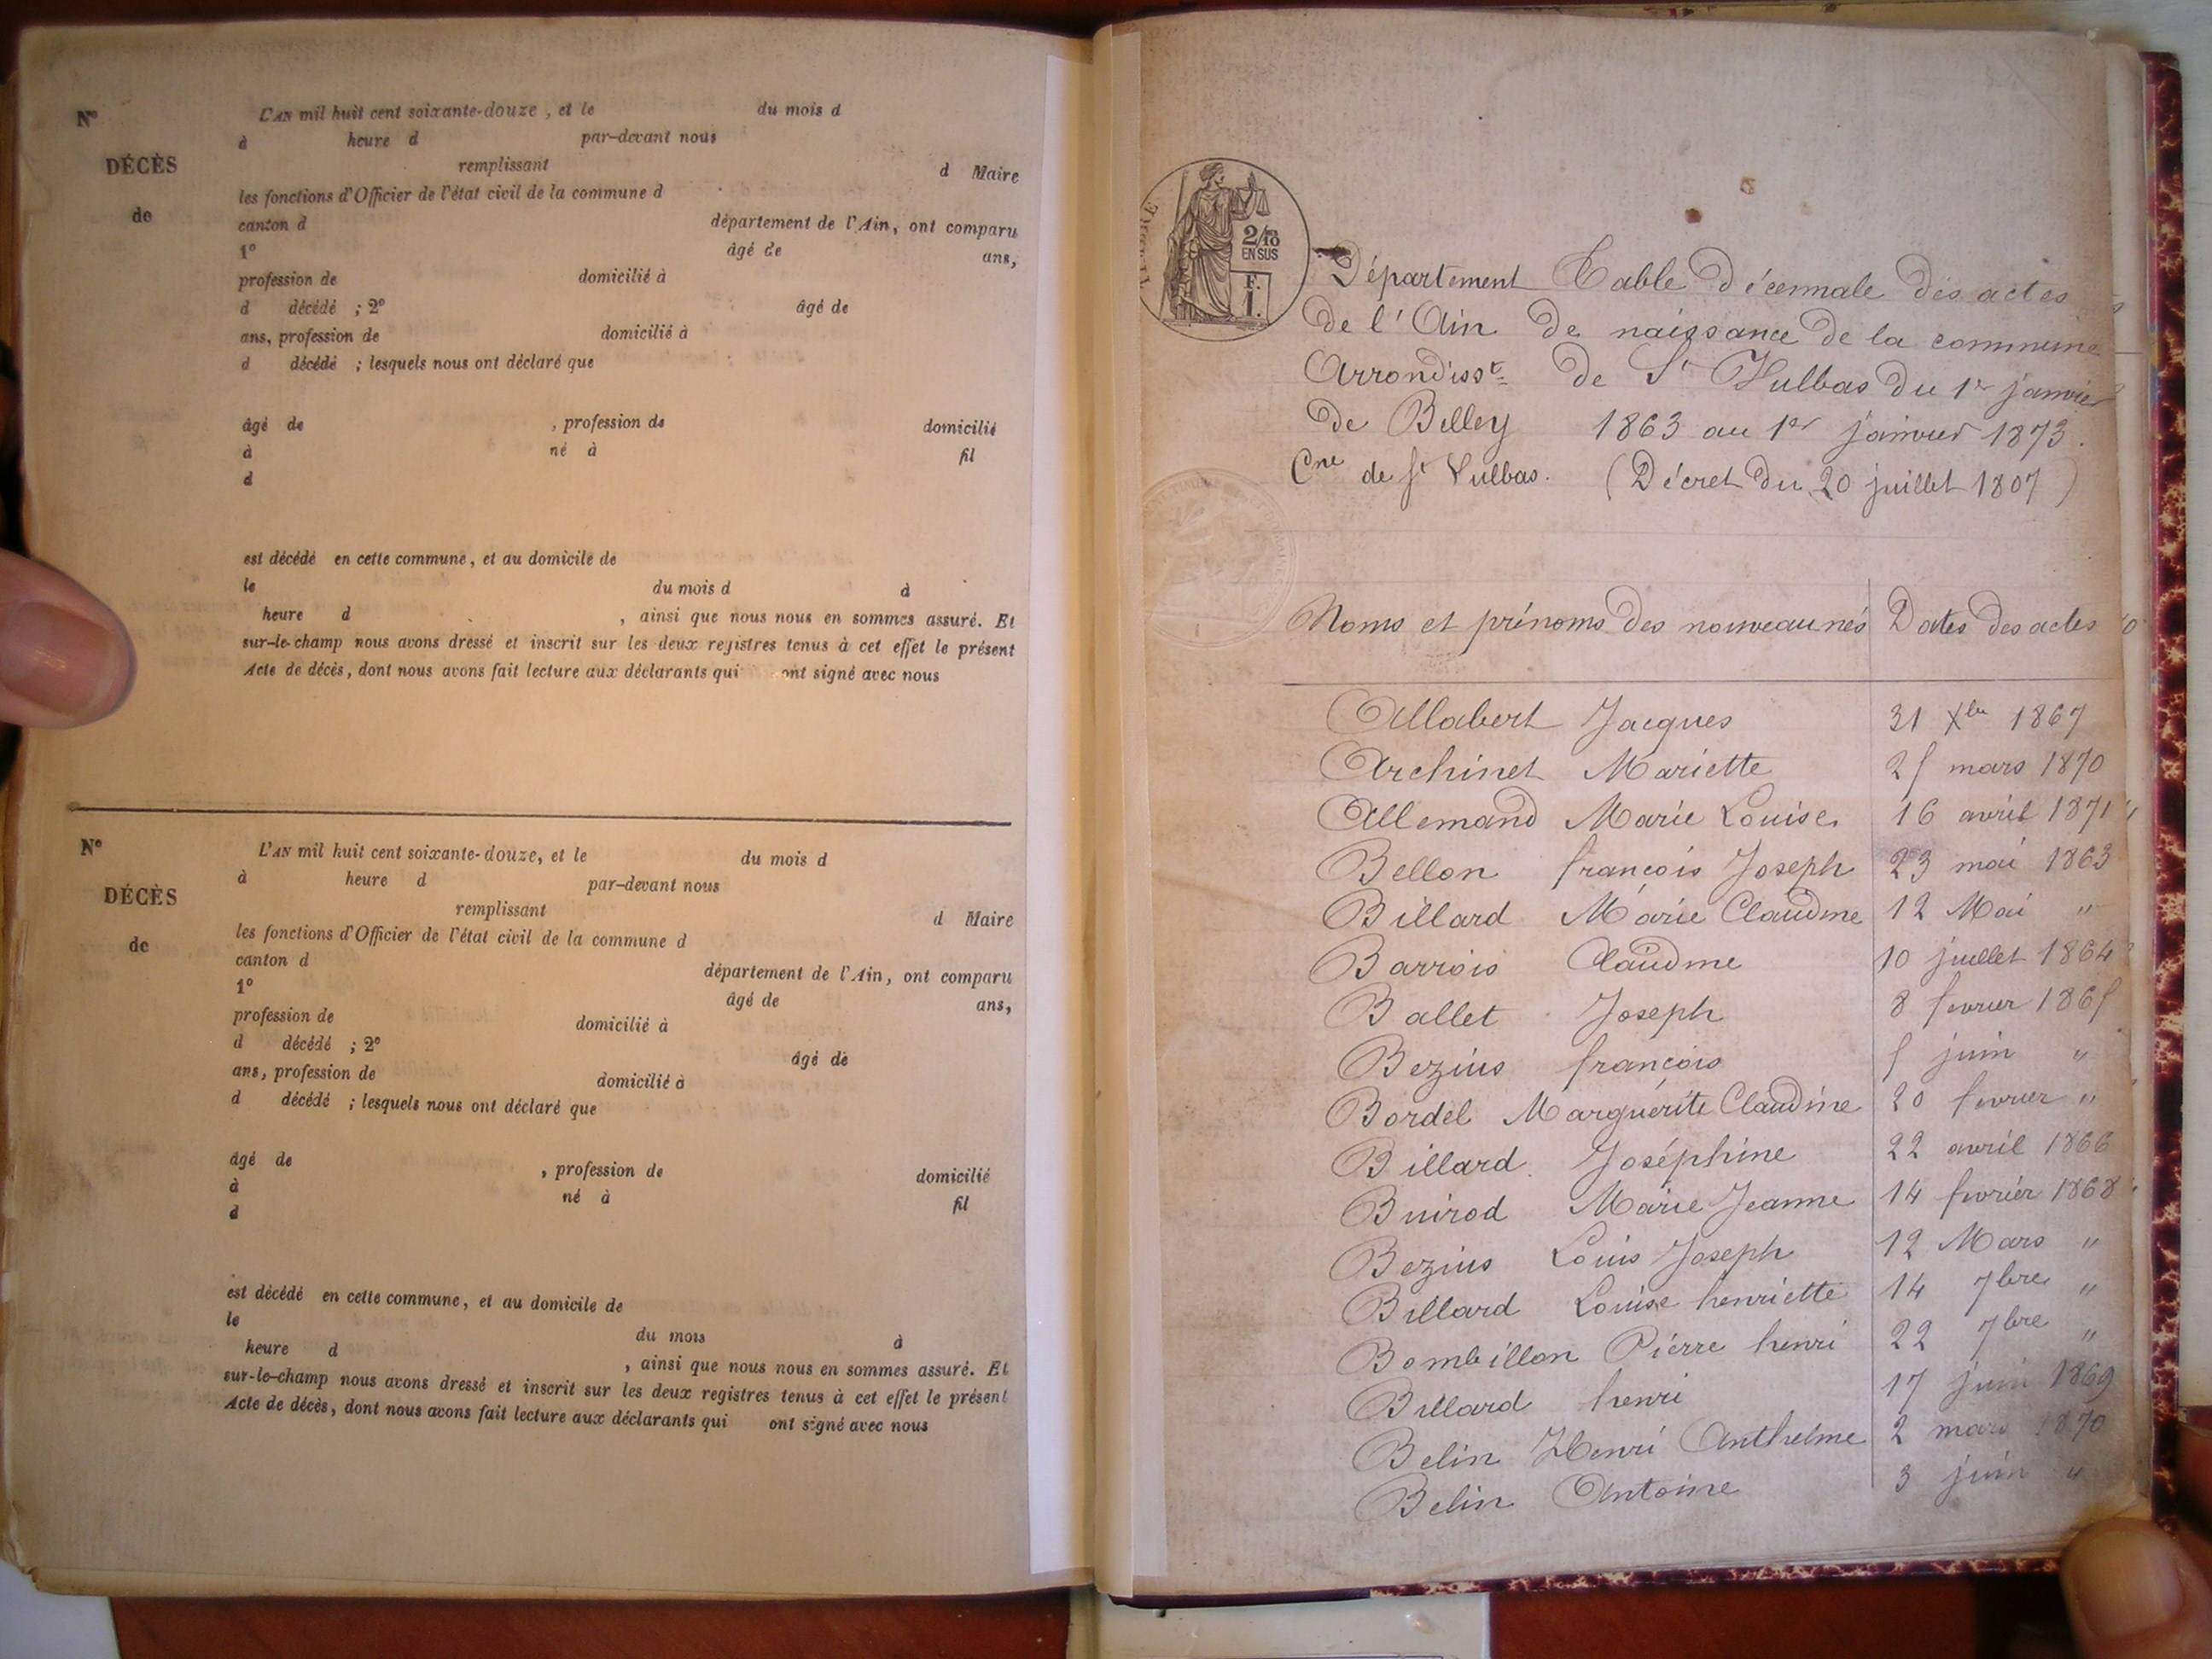 N° L'AN mil huit cent soixante-douze, et le du mois d
à heure d par-devant nous
DÉCÈS remplissant d Maire
les fonctions d'Officier de l'état civil de la commune d
de canton d département de l'Ain, ont comparu
1° âgé de ans,
profession de domicilié à
d décédé ; 2° âgé de
ans, profession de domicilié à
d décédé ; lesquels nous ont déclaré que
âgé de , profession de domicilié
à né à fil
d
est décédé en cette commune, et au domicile de
le du mois d à
heure d , ainsi que nous nous en sommes assuré. Et
sur-le-champ nous avons dressé et inscrit sur les deux registres tenus à cet effet le présent
Acte de décès, dont nous avons fait lecture aux déclarants qui ont signé avec nous
N° L'AN mil huit cent soixante-douze, et le du mois d
à heure d par-devant nous
DÉCÈS remplissant d Maire
les fonctions d'Officier de l'état civil de la commune d
de canton d département de l'Ain, ont comparu
1° âgé de ans,
profession de domicilié à
d décédé ; 2° âgé de
ans, profession de domicilié à
d décédé ; lesquels nous ont déclaré que
âgé de , profession de domicilié
à né à fil
d
est décédé en cette commune, et au domicile de
le du mois à
heure d , ainsi que nous nous en sommes assuré. Et
sur-le-champ nous avons dressé et inscrit sur les deux registres tenus à cet effet le présent
Acte de décès, dont nous avons fait lecture aux déclarants qui ont signé avec nous
2/10
EN SUS
F.
1.
Département Table décennale des actes
de l'Ain de naissance de la commune
Arrondisst de St Vulbas du 1er janvier
de Belley 1863 au 1er janvier 1873.
Cne de St Vulbas. (Décret du 20 juillet 1807)
Noms et prénoms des nouveaunés Dates des actes
Allabert Jacques 31 Xbre 1867
Archinet Mariette 25 mars 1870
Allemand Marie Louise 16 avril 1871
Bellon françois Joseph 23 mai 1863
Billard Marie Claudine 12 Mai "
Barrois Claudine 10 juillet 1864
Ballet Joseph 8 fevrier 1865
Bezius françois 5 juin "
Bordel Marguérite Claudine 20 fevrier "
Billard Joséphine 22 avril 1866
Buirod Marie Jeanne 14 fevrier 1868
Bezius Louis Joseph 12 Mars "
Billard Louise henriette 14 7bre "
Bombillon Pierre henri 22 7bre "
Billard henri 17 juin 1869
Belin Henri Anthelme 2 mars 1870
Belin Antoine 3 juin "